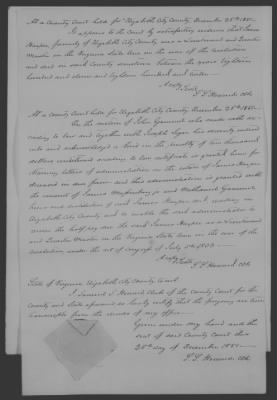 At a County Court held for Elizabeth City County, December 25th 1850.
It appears to the Court by satisfactory evidence that James
formerly of Elizabeth City County was a Lieutenant and Quarter
Master in the Virginia State Line in the war of the revolution
and died in said County sometime between the years eighteen
hundred and eleven and eighteen hundred and
A copy
Teste
S. S. Howard, Clk
At a County Court held for Elizabeth City County, December 25th 1850.
On the motion of John who made oath ac-
cording to law and together with Joseph entered
into and acknowledged a bond in the penalty of two thousand
dollars conditioned according to law certificate is granted him for
obtaining letters of administration on the estate of James
deceased in due form and this administration is granted with
the consent of James and Nathaniel
and of said James and residing in
Elizabeth City County and to enable the said administrator to
receive the half pay due the said James as a Lieutenant
and Quarter Master in the Virginia State Line in the war of the
revolution, under the act of congress of July 5th 1832.
A copy
Teste
S. S. Howard, Clk
State of Virginia, Elizabeth City County Court
I, Samuel S. Howard Clerk of the County Court for the
county and State aforesaid do hereby certify that the foregoing are true
transcripts from the records of my office.
Given under my hand and the
seal of said County Court this
25th day of December 1850.
S. S. Howard, Clk